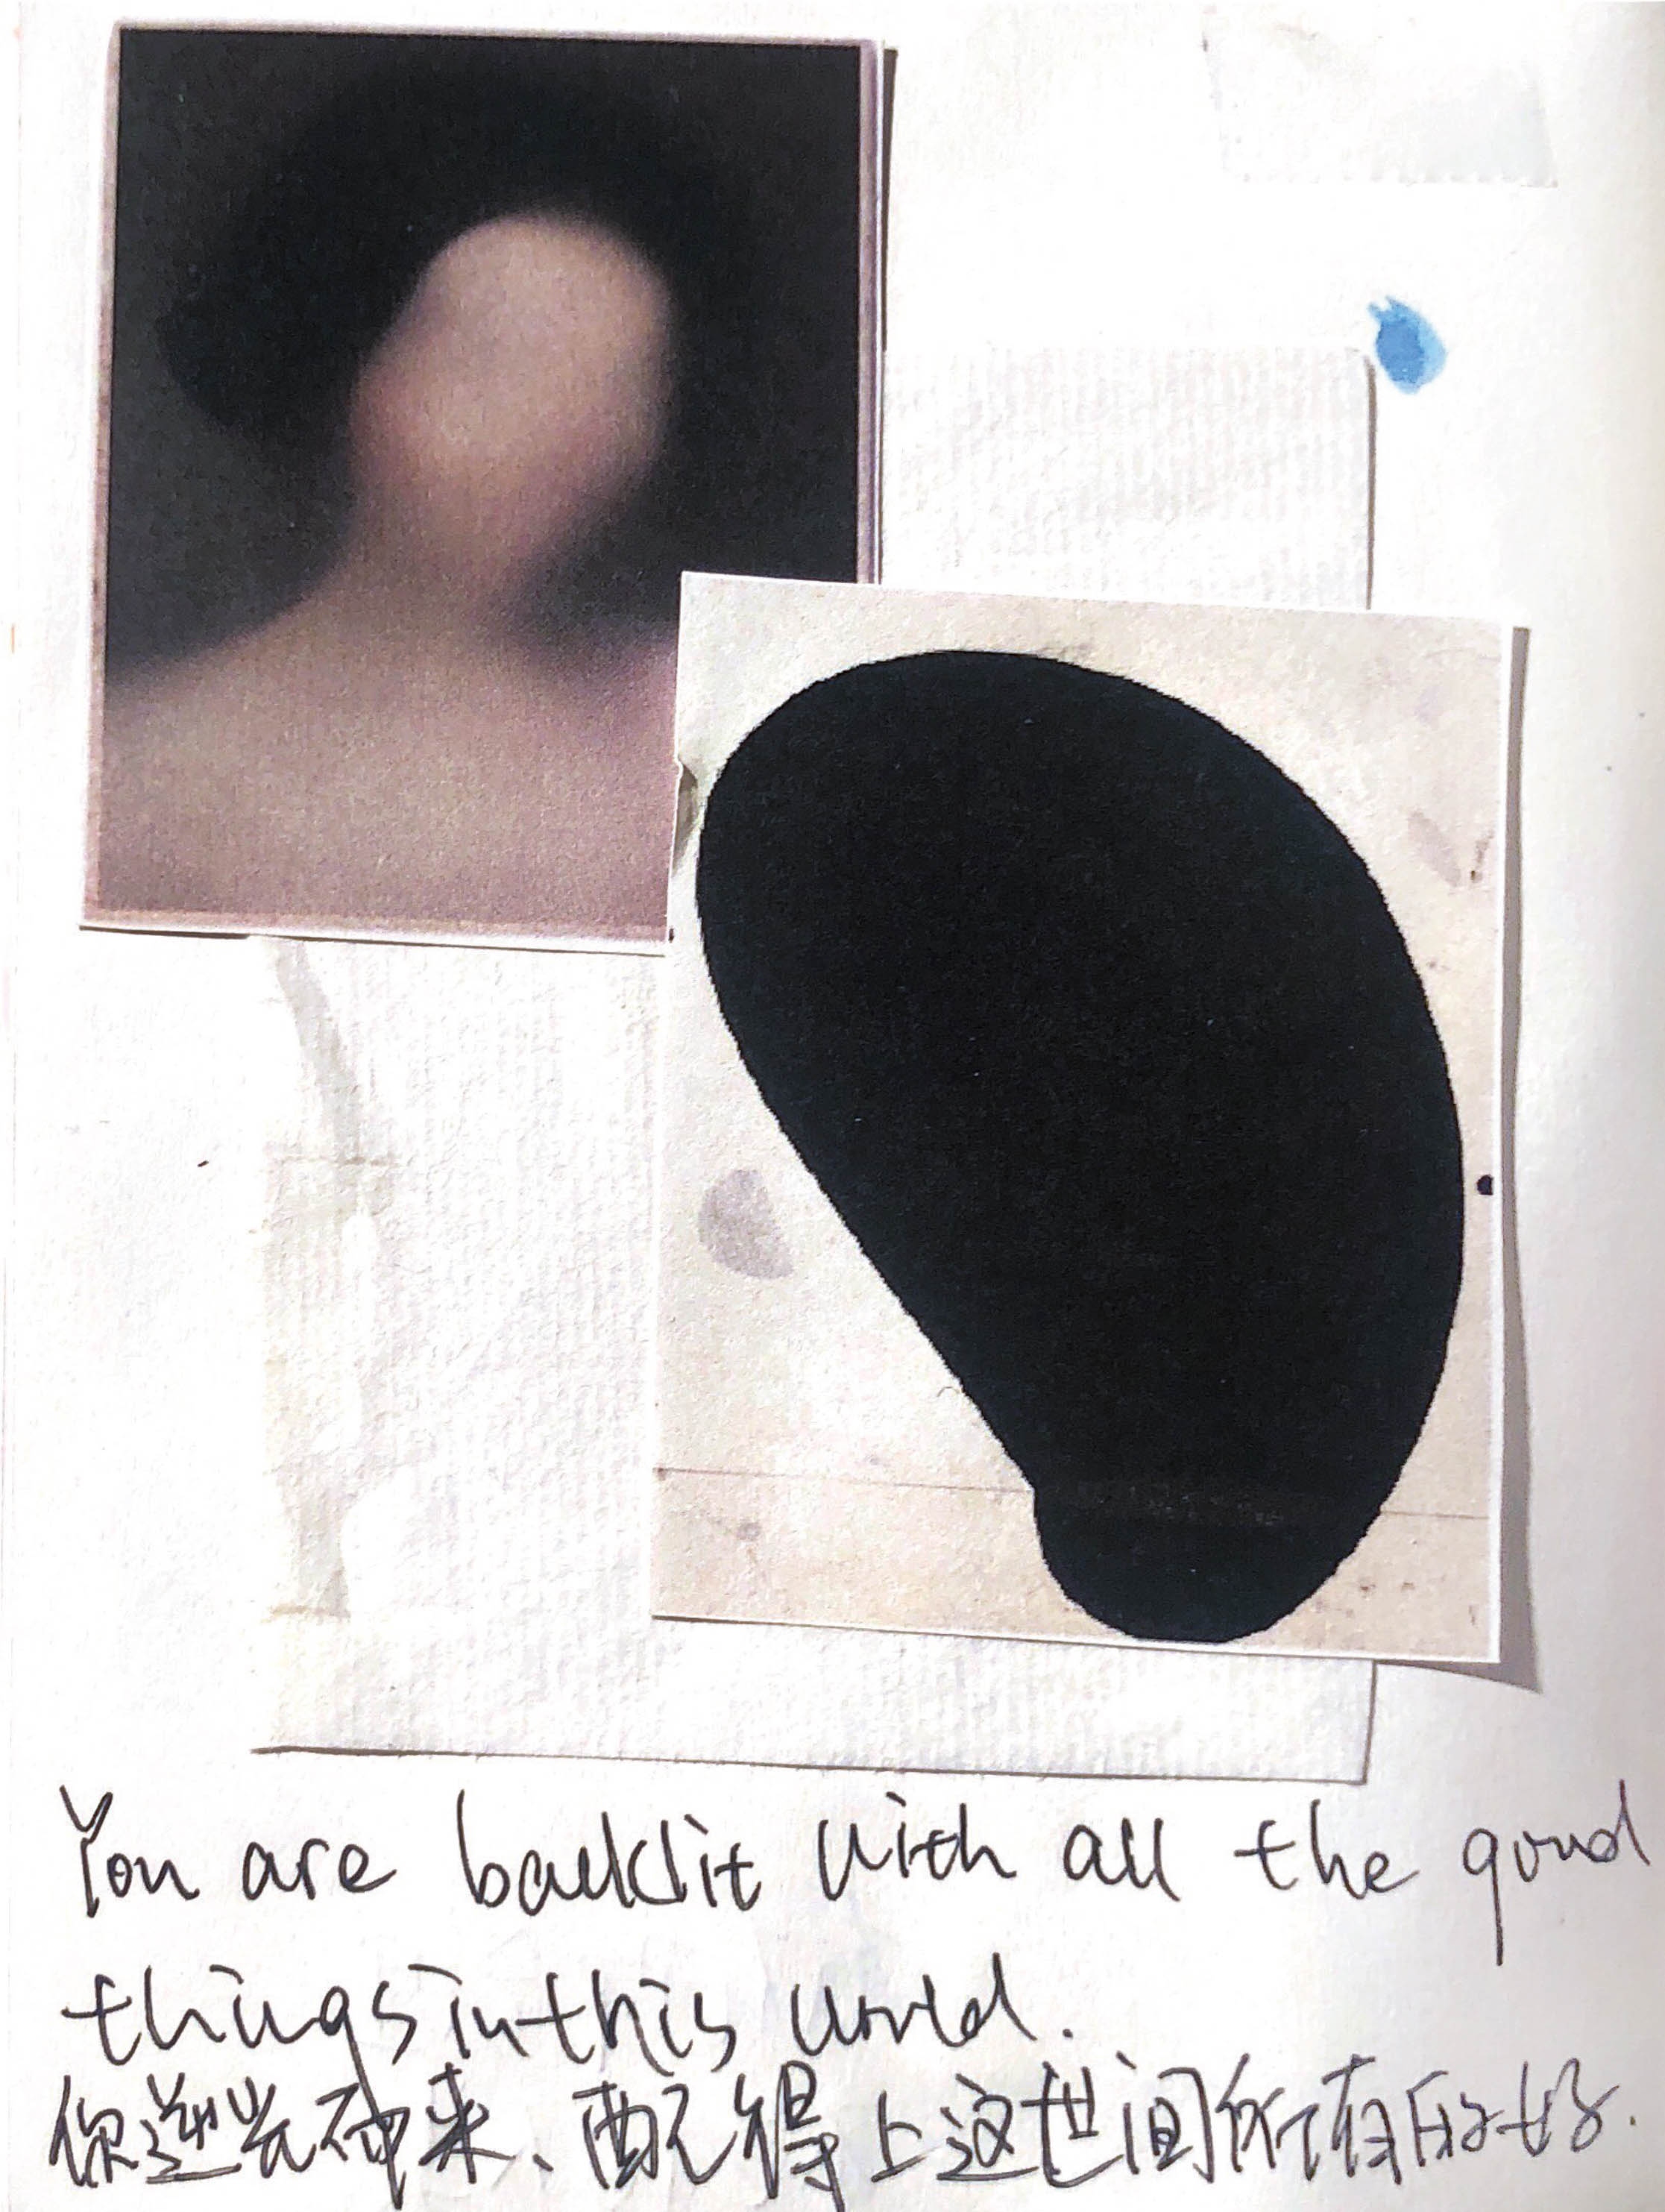 You are backlit with all the good
things in this world.
你逆光而来、配得上这世间所有的好.